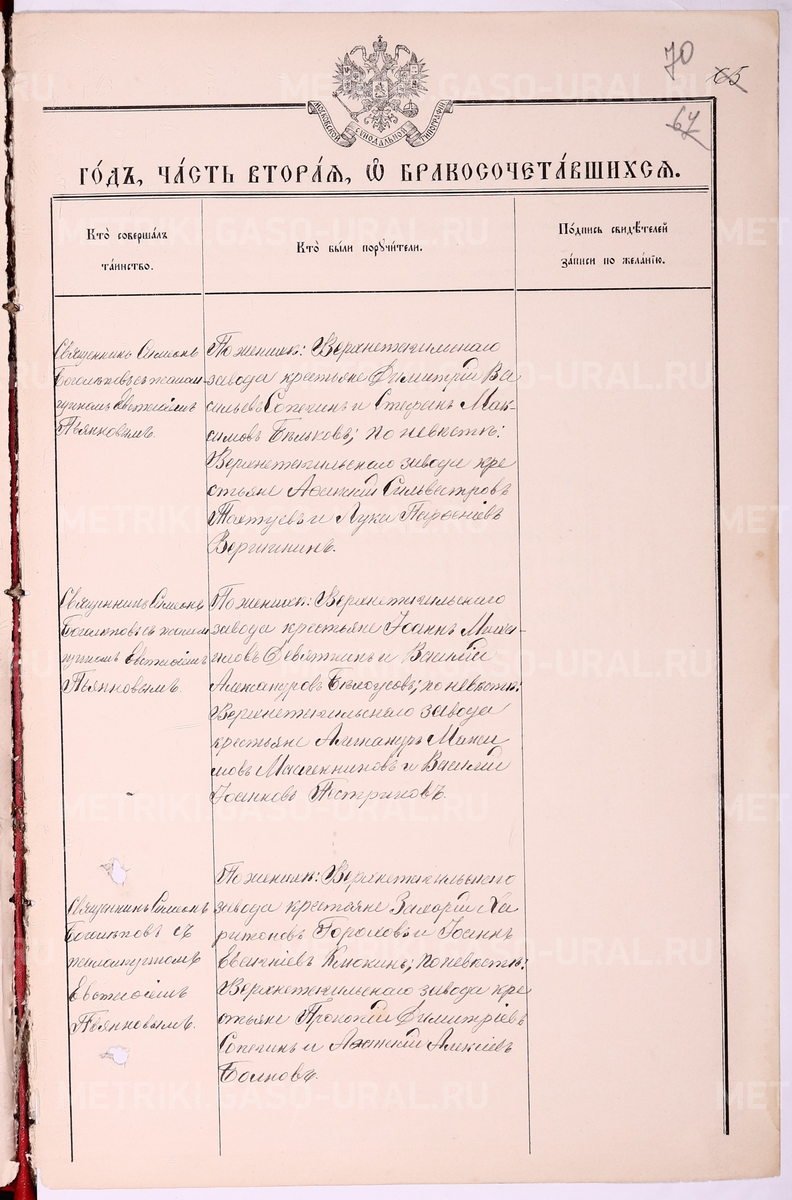 70
65
67
МОСКОВСКОЙ СѴНОДАЛЬНОЙ ТИПОГРАФІИ
ГО́ДЪ, ЧА́СТЬ ВТОРА́Я, Ѽ БРАКОСОЧЕТА́ВШИХСЯ.
Кто̀ соверша́лъ
та́инство.
Кто̀ бы́ли порꙋчи́тели.
По́дпись свидѣ́телей
за́писи по жела́нію.
Священникъ Симеонъ
Богомоловъ съ псалом-
щикомъ Евтихіемъ
Пьянковымъ.
По женихѣ: Верхнетагильскаго
завода крестьяне Димитрій Ва
сильевъ Сопегинъ и Стефанъ Мак-
симовъ Бѣльковъ; по невѣстѣ:
Верхнетагильскаго завода кре
стьяне Аѳанасій Сильвестровъ
и Лука Парѳеніевъ
Священникъ Симеонъ
съ псалом
щикомъ Евтихіемъ
Пьянковымъ.
По женихѣ: Верхнетагильскаго
завода крестьяне Іоаннъ Миха-
иловъ Девяткинъ и Василій
Александровъ Бѣлоусовъ; по невѣстѣ:
Верхнетагильскаго завода
крестьяне Александръ Макси
мовъ Масленниковъ и Василій
Іоанновъ Пестриковъ.
Священникъ Симеонъ
съ
псаломщикомъ
Евтихіемъ
Пьянковымъ.
По женихѣ: Верхнетагильскаго
завода крестьяне Захарій Ха
ритоновъ Гороховъ и Іоаннъ
Евгеніевъ Клюкинъ; по невѣстѣ:
Верхнетагильскаго завода кре
стьяне Прокопій Димитріевъ
Сопегинъ и Аѳанасій Алексіевъ
METRIKI.GASO-URAL.RU